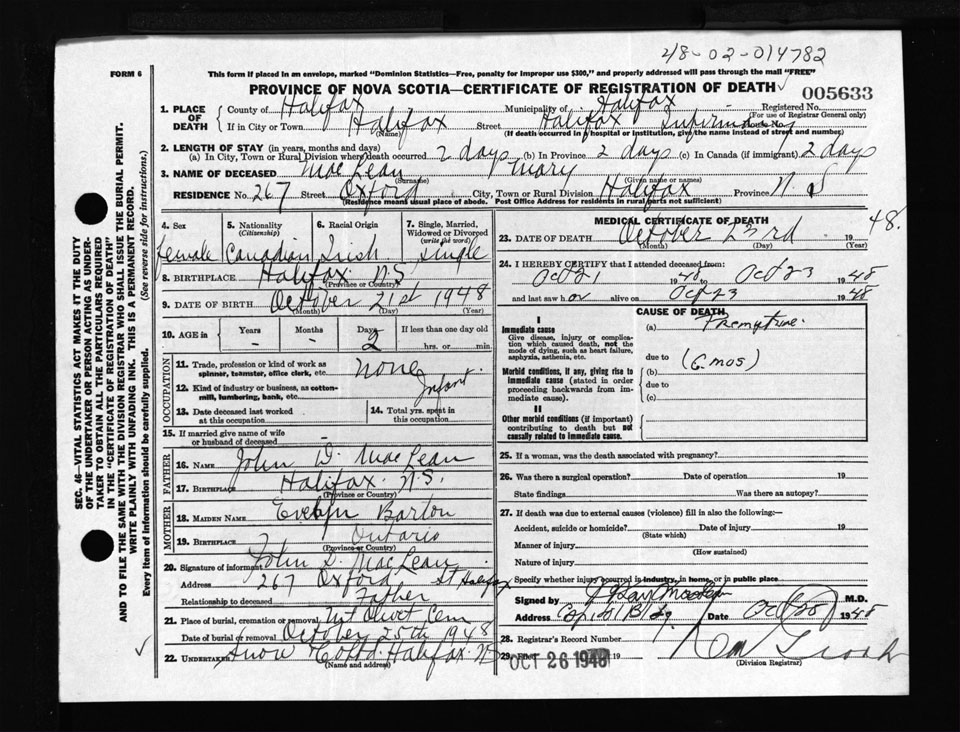 48-02-014782
FORM 6
This form if placed in an envelope, marked "Dominion Statistics—Free, penalty for improper use $300," and properly addressed will pass through the mail "FREE"
PROVINCE OF NOVA SCOTIA—CERTIFICATE OF REGISTRATION OF DEATH
005633
1. PLACE OF DEATH
County of Halifax Municipality of Halifax Registered No.
(For use of Registrar General only)
If in City or Town Halifax Street Halifax Infirmary
(Name) (If death occurred in a hospital or institution, give the name instead of street and number)
2. LENGTH OF STAY (in years, months and days)
(a) In City, Town or Rural Division where death occurred 2 days (b) In Province 2 days (c) In Canada (if immigrant) 2 days
3. NAME OF DECEASED MacLean Mary
(Surname) (Given name or names)
RESIDENCE No. 267 Street Oxford City, Town or Rural Division Halifax Province N. S
(Residence means usual place of abode. Post Office Address for residents in rural parts not sufficient)
4. Sex 5. Nationality (Citizenship) 6. Racial Origin 7. Single, Married, Widowed or Divorced (write the word)
female Canadian Irish Single
8. BIRTHPLACE Halifax N.S.
(Province or Country)
9. DATE OF BIRTH October 21st 1948
(Month) (Day) (Year)
10. AGE in Years Months Days If less than one day old
- - 2 hrs. or min.
OCCUPATION
11. Trade, profession or kind of work as spinner, teamster, office clerk, etc. none
12. Kind of industry or business, as cotton-mill, lumbering, bank, etc. Infant
13. Date deceased last worked at this occupation 14. Total yrs. spent in this occupation
15. If married give name of wife or husband of deceased
FATHER
16. NAME John D. MacLean
17. BIRTHPLACE Halifax N.S.
(Province or Country)
MOTHER
18. MAIDEN NAME Evelyn Barton
19. BIRTHPLACE Ontario
(Province or Country)
20. Signature of informant John D. MacLean
Address 267 Oxford St Halifax
Relationship to deceased Father
21. Place of burial, cremation or removal Mt Olivet Cem
Date of burial or removal October 25th 1948
22. UNDERTAKER Snow Halifax NS
(Name and address)
MEDICAL CERTIFICATE OF DEATH
23. DATE OF DEATH October 23rd 19 48.
(Month) (Day) (Year)
24. I HEREBY CERTIFY that I attended deceased from
Oct 21 1948 Oct 23 1948
and last saw h er alive on Oct 23 1948
CAUSE OF DEATH
I
Immediate cause
Give disease, injury or complication which caused death, not the mode of dying, such as heart failure, asphyxia, asthenia, etc.
(a)
due to (6 mos)
Morbid conditions, if any, giving rise to immediate cause (stated in order proceeding backwards from immediate cause).
(b)
due to
(c)
II
Other morbid conditions (if important) contributing to death but not causally related to immediate cause.
25. If a woman, was the death associated with pregnancy?
26. Was there a surgical operation? Date of operation 19
State findings Was there an autopsy?
27. If death was due to external causes (violence) fill in also the following:—
Accident, suicide or homicide? Date of injury 19
(State which)
Manner of injury
(How sustained)
Nature of injury
Specify whether injury occurred in industry, in home, or in public place
Signed by M.D.
Address Capitol Bldg Date Oct 25 1948
28. Registrar's Record Number
29. OCT 26 1948
(Division Registrar)
SEC. 46—VITAL STATISTICS ACT MAKES IT THE DUTY
OF THE UNDERTAKER OR PERSON ACTING AS UNDER-
TAKER TO OBTAIN ALL THE PARTICULARS REQUIRED
IN THE "CERTIFICATE OF REGISTRATION OF DEATH"
AND TO FILE THE SAME WITH THE DIVISION REGISTRAR WHO SHALL ISSUE THE BURIAL PERMIT.
WRITE PLAINLY WITH UNFADING INK. THIS IS A PERMANENT RECORD.
Every item of information should be carefully supplied. (See reverse side for instructions.)